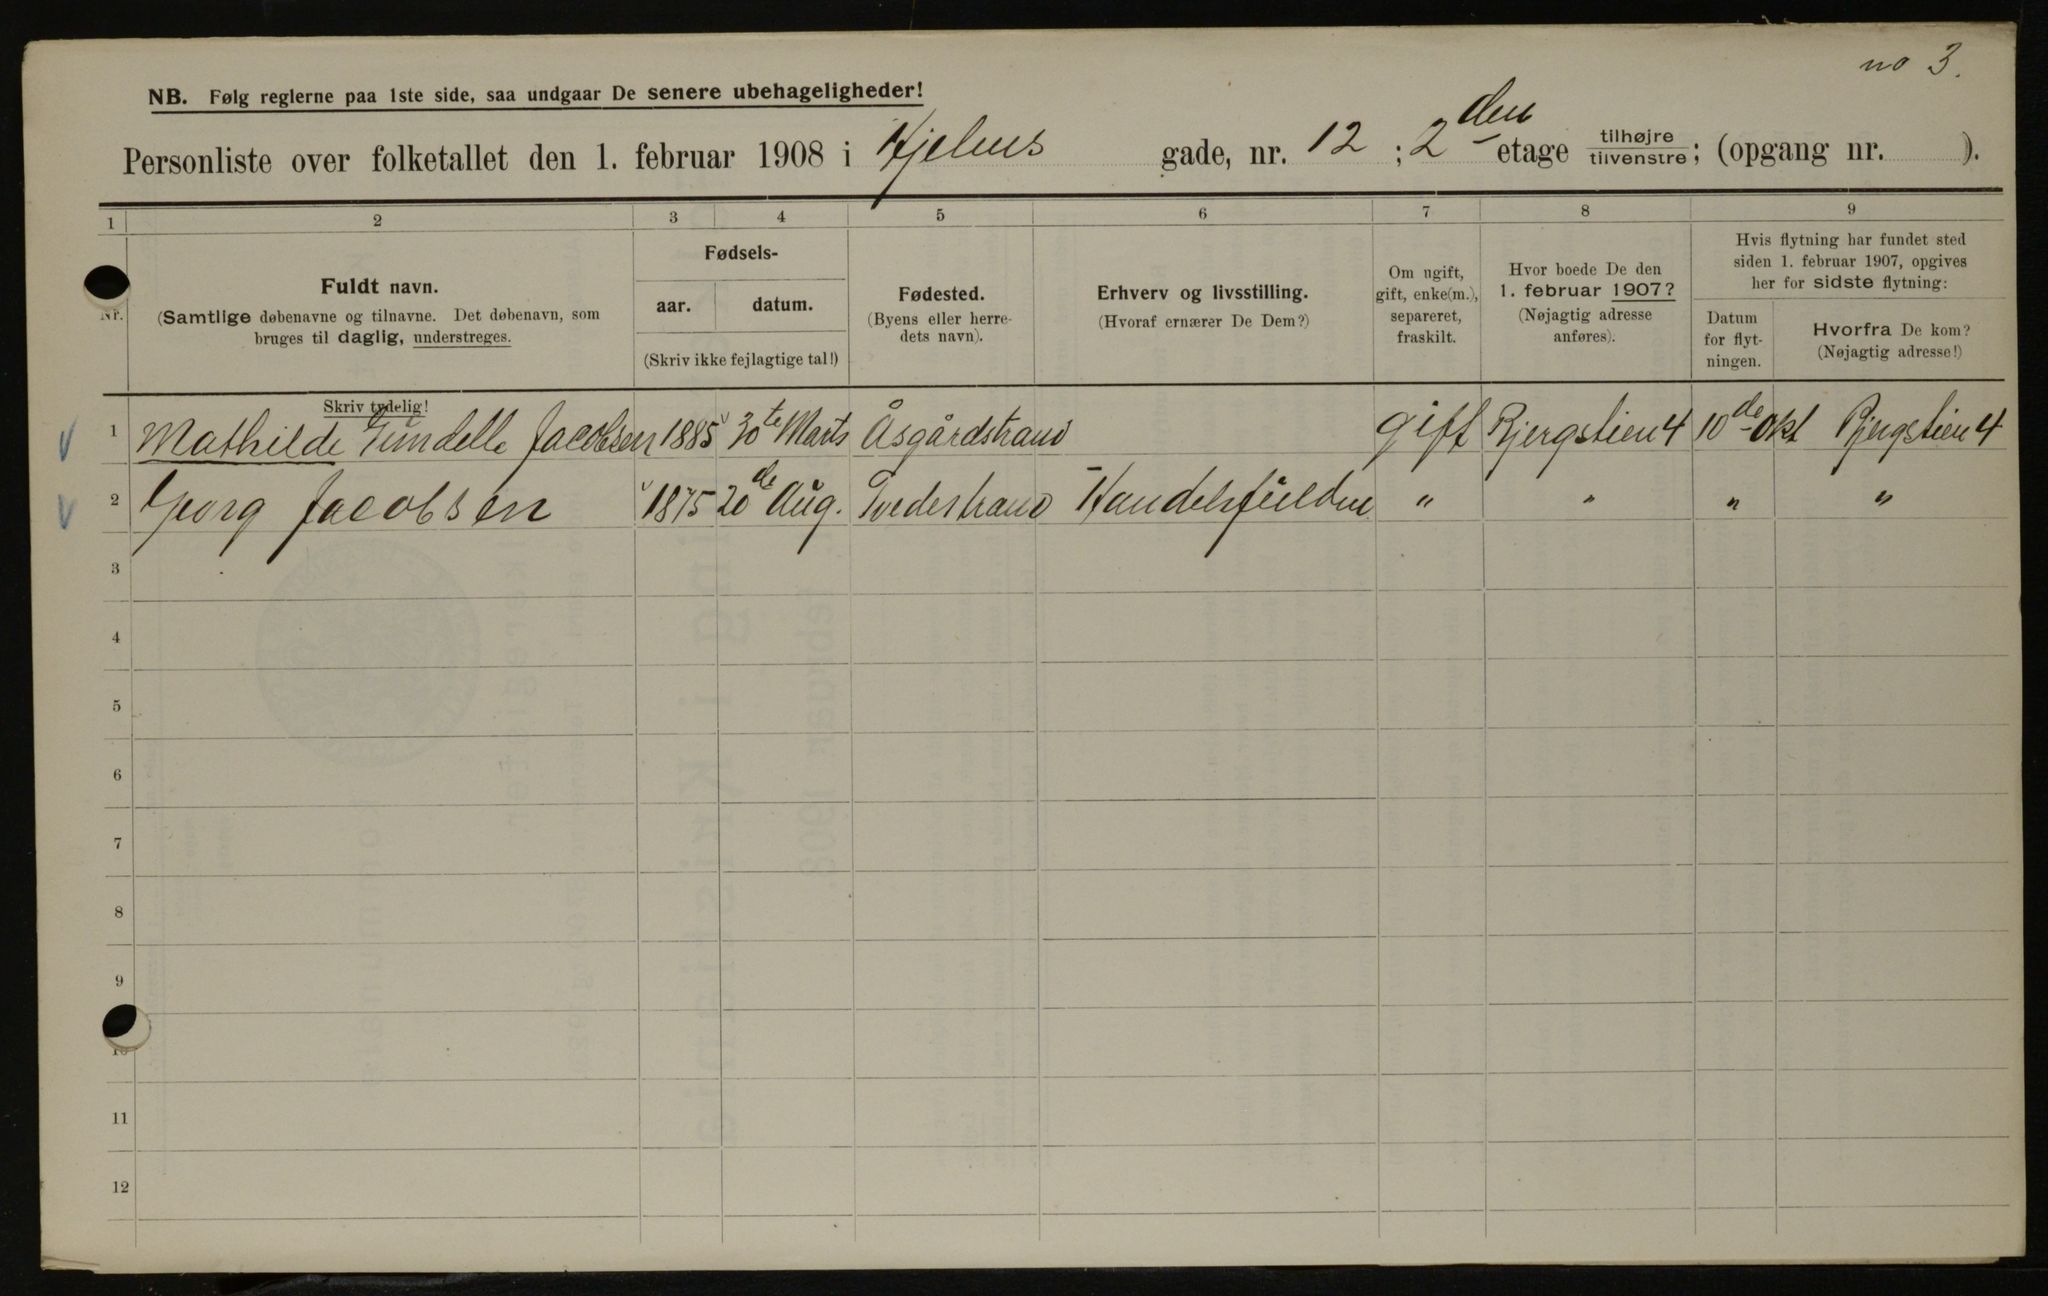 no 3.
NB. Følg reglerne paa 1ste side, saa undgaar De senere ubehageligheder!
Personliste over folketallet den 1. februar 1908 i Hjelms gade, nr. 12 ; 2den etage tilhøjre / tilvenstre; (opgang nr. ).
1 2 3 4 5 6 7 8 9
Nr.
Fuldt navn.
(Samtlige døbenavne og tilnavne. Det døbenavn, som
bruges til daglig, understreges.
Skriv tydelig!
Fødsels-
aar. datum.
(Skriv ikke fejlagtige tal!)
Fødested.
(Byens eller herre-
dets navn).
Erhverv og livsstilling.
(Hvoraf ernærer De Dem?)
Om ugift,
gift, enke(m.),
separeret,
fraskilt.
Hvor boede De den
1. februar 1907?
(Nøjagtig adresse
anføres).
Hvis flytning har fundet sted
siden 1. februar 1907, opgives
her for sidste flytning:
Datum
for flyt-
ningen.
Hvorfra De kom?
(Nøjagtig adresse!)
1 Mathilde Jacobsen 1885 30te Marts Åsgårdstrand gift Bjergstien 4 10de Okt Bjergstien 4
2 Georg Jacobsen 1875 20de Aug. Tvedestrand " " " "
3
4
5
6
7
8
9
10
11
12